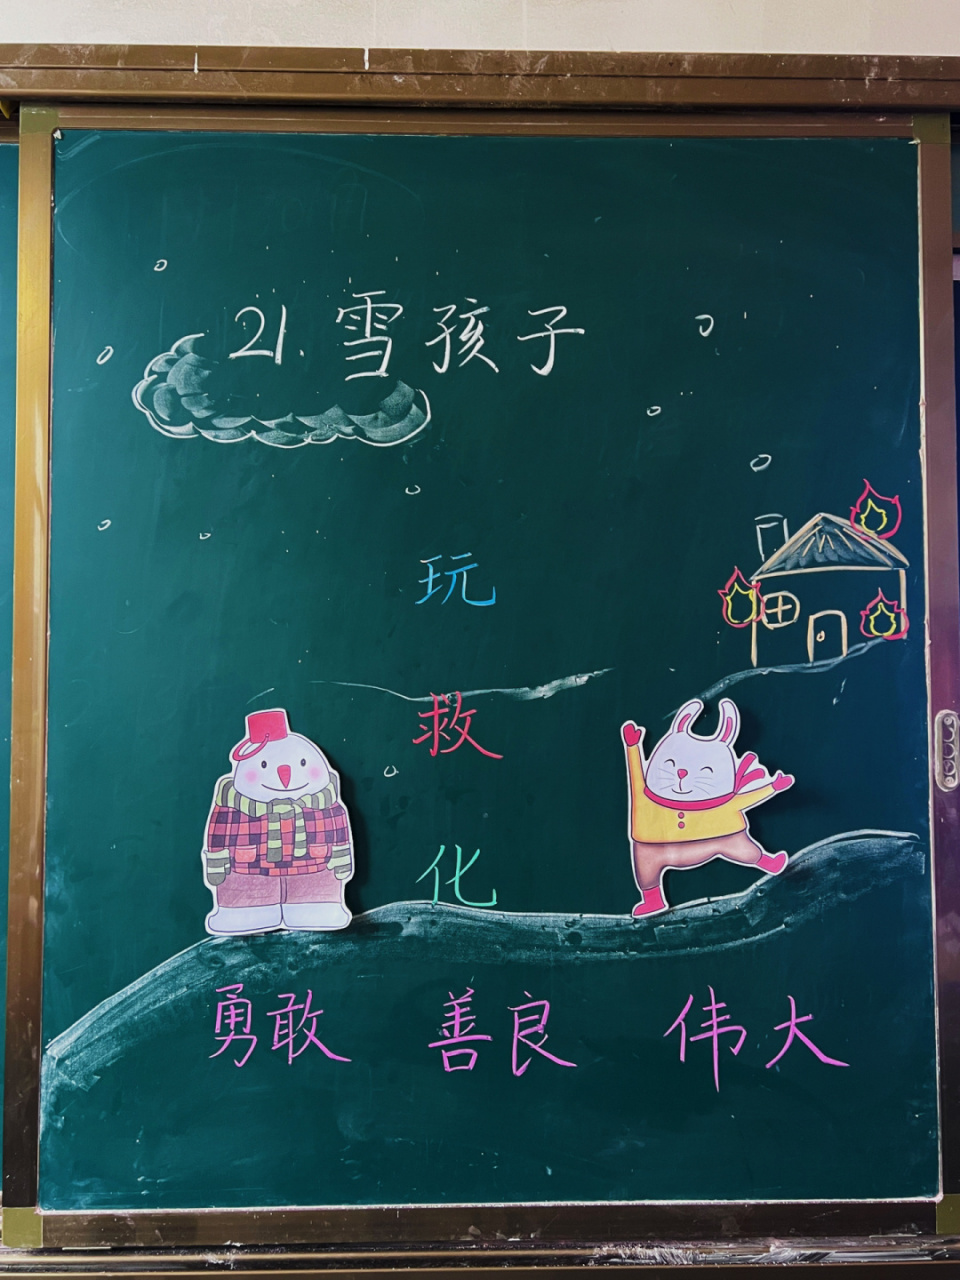 21.雪孩子
玩
救
化
勇敢 善良 伟大